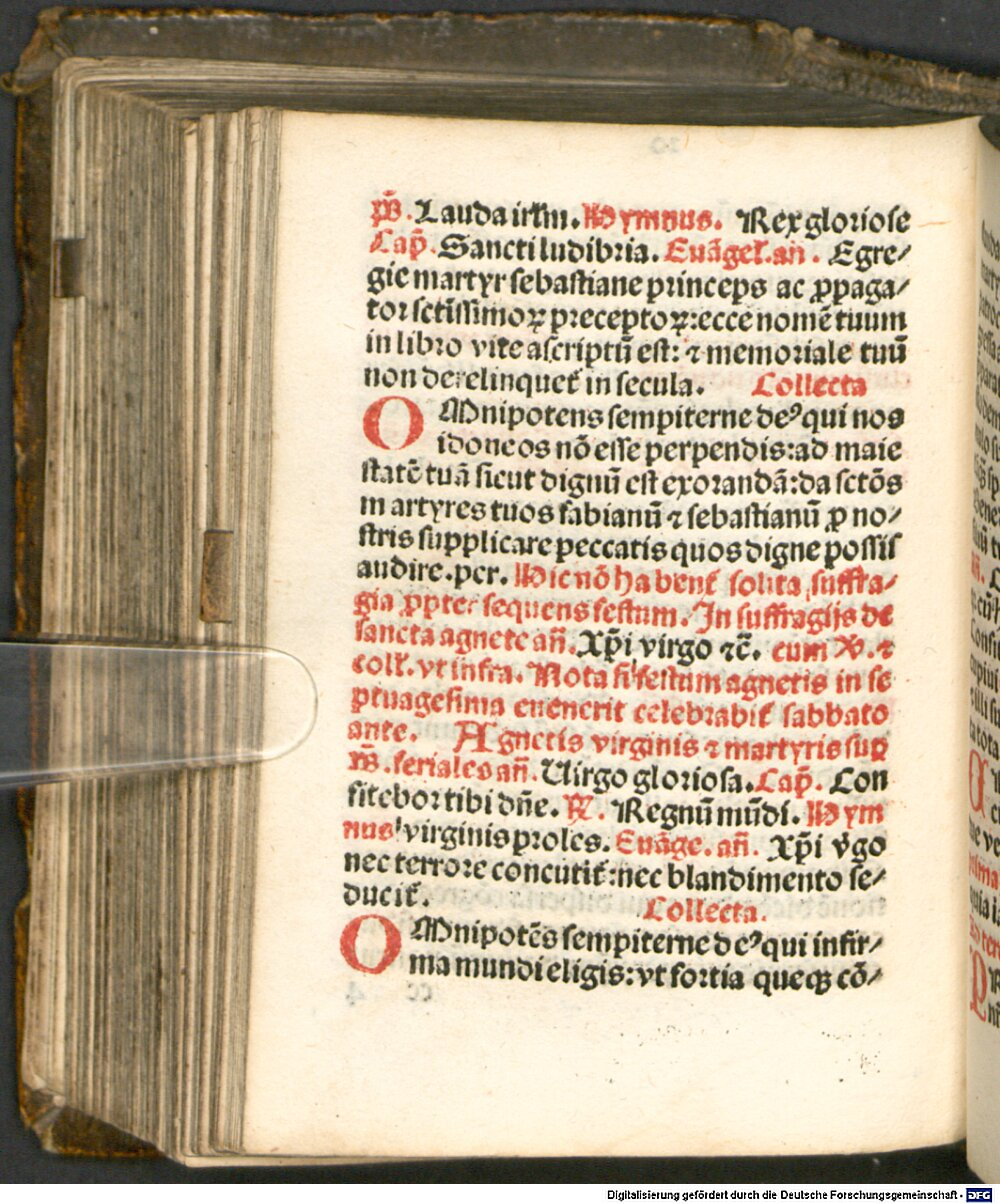 p̄s. Lauda irl̄m. Hymnus. Rex gloriose
Cap̄. Sancti ludibria. Euāgel̄. an̄. Egre⸗
gie martyr sebastiane princeps ac ꝓpaga⸗
tor sctīssimoꝝ preceptoꝝ: ecce nomē tuum
in libro vite ascriptū est: ⁊ memoriale tuū
non derelinquet᷑ in secula. Collecta
OMnipotens sempiterne deꝰ qui nos
idoneos nō esse perpendis: ad maie
statē tuā sicut dignū est exorandā: da sctōs
martyres tuos fabianū ⁊ sebastianū ꝓ no⸗
stris supplicare peccatis quos digne possis
audire. per. Hic nō habent᷑ solita suffra⸗
gia ꝓpter sequens festum. In suffragijs de
sancta agnete an̄. Xp̄i virgo ⁊c̄. cum V̄. ⁊
coll̄. vt infra. Nota si festum agnetis in se
ptuagesima euenerit celebrabit᷑ sabbato
ante. Agnetis virginis ⁊ martyris sup̄
p̄s. feriales an̄. Uirgo gloriosa. Cap̄. Con
fitebor tibi dn̄e. R̄. Regnū mūdi. Hym
nus virginis proles. Euāge. an̄. Xp̄i v̓go
nec terrore concutit᷑: nec blandimento se⸗
ducit᷑. Collecta.
OMnipotēs sempiterne deꝰ qui infir⸗
ma mundi eligis: vt fortia queqꝫ cō⸗
Digitalisierung gefördert durch die Deutsche Forschungsgemeinschaft - DFG